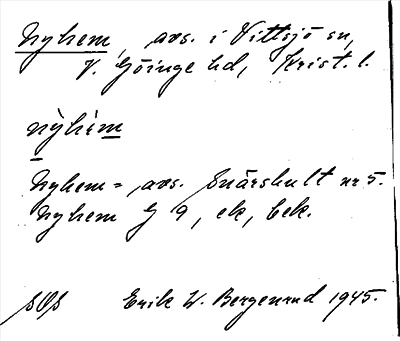 Nyhem, avs. i Vittsjö sn,
V. Göinge hd, Krist. l.
nỳhém
Nyhem = avs. Snärshult nr 5.
Nyhem G 9, ek, bek.
SOS Erik W. Bergenrud 1945.